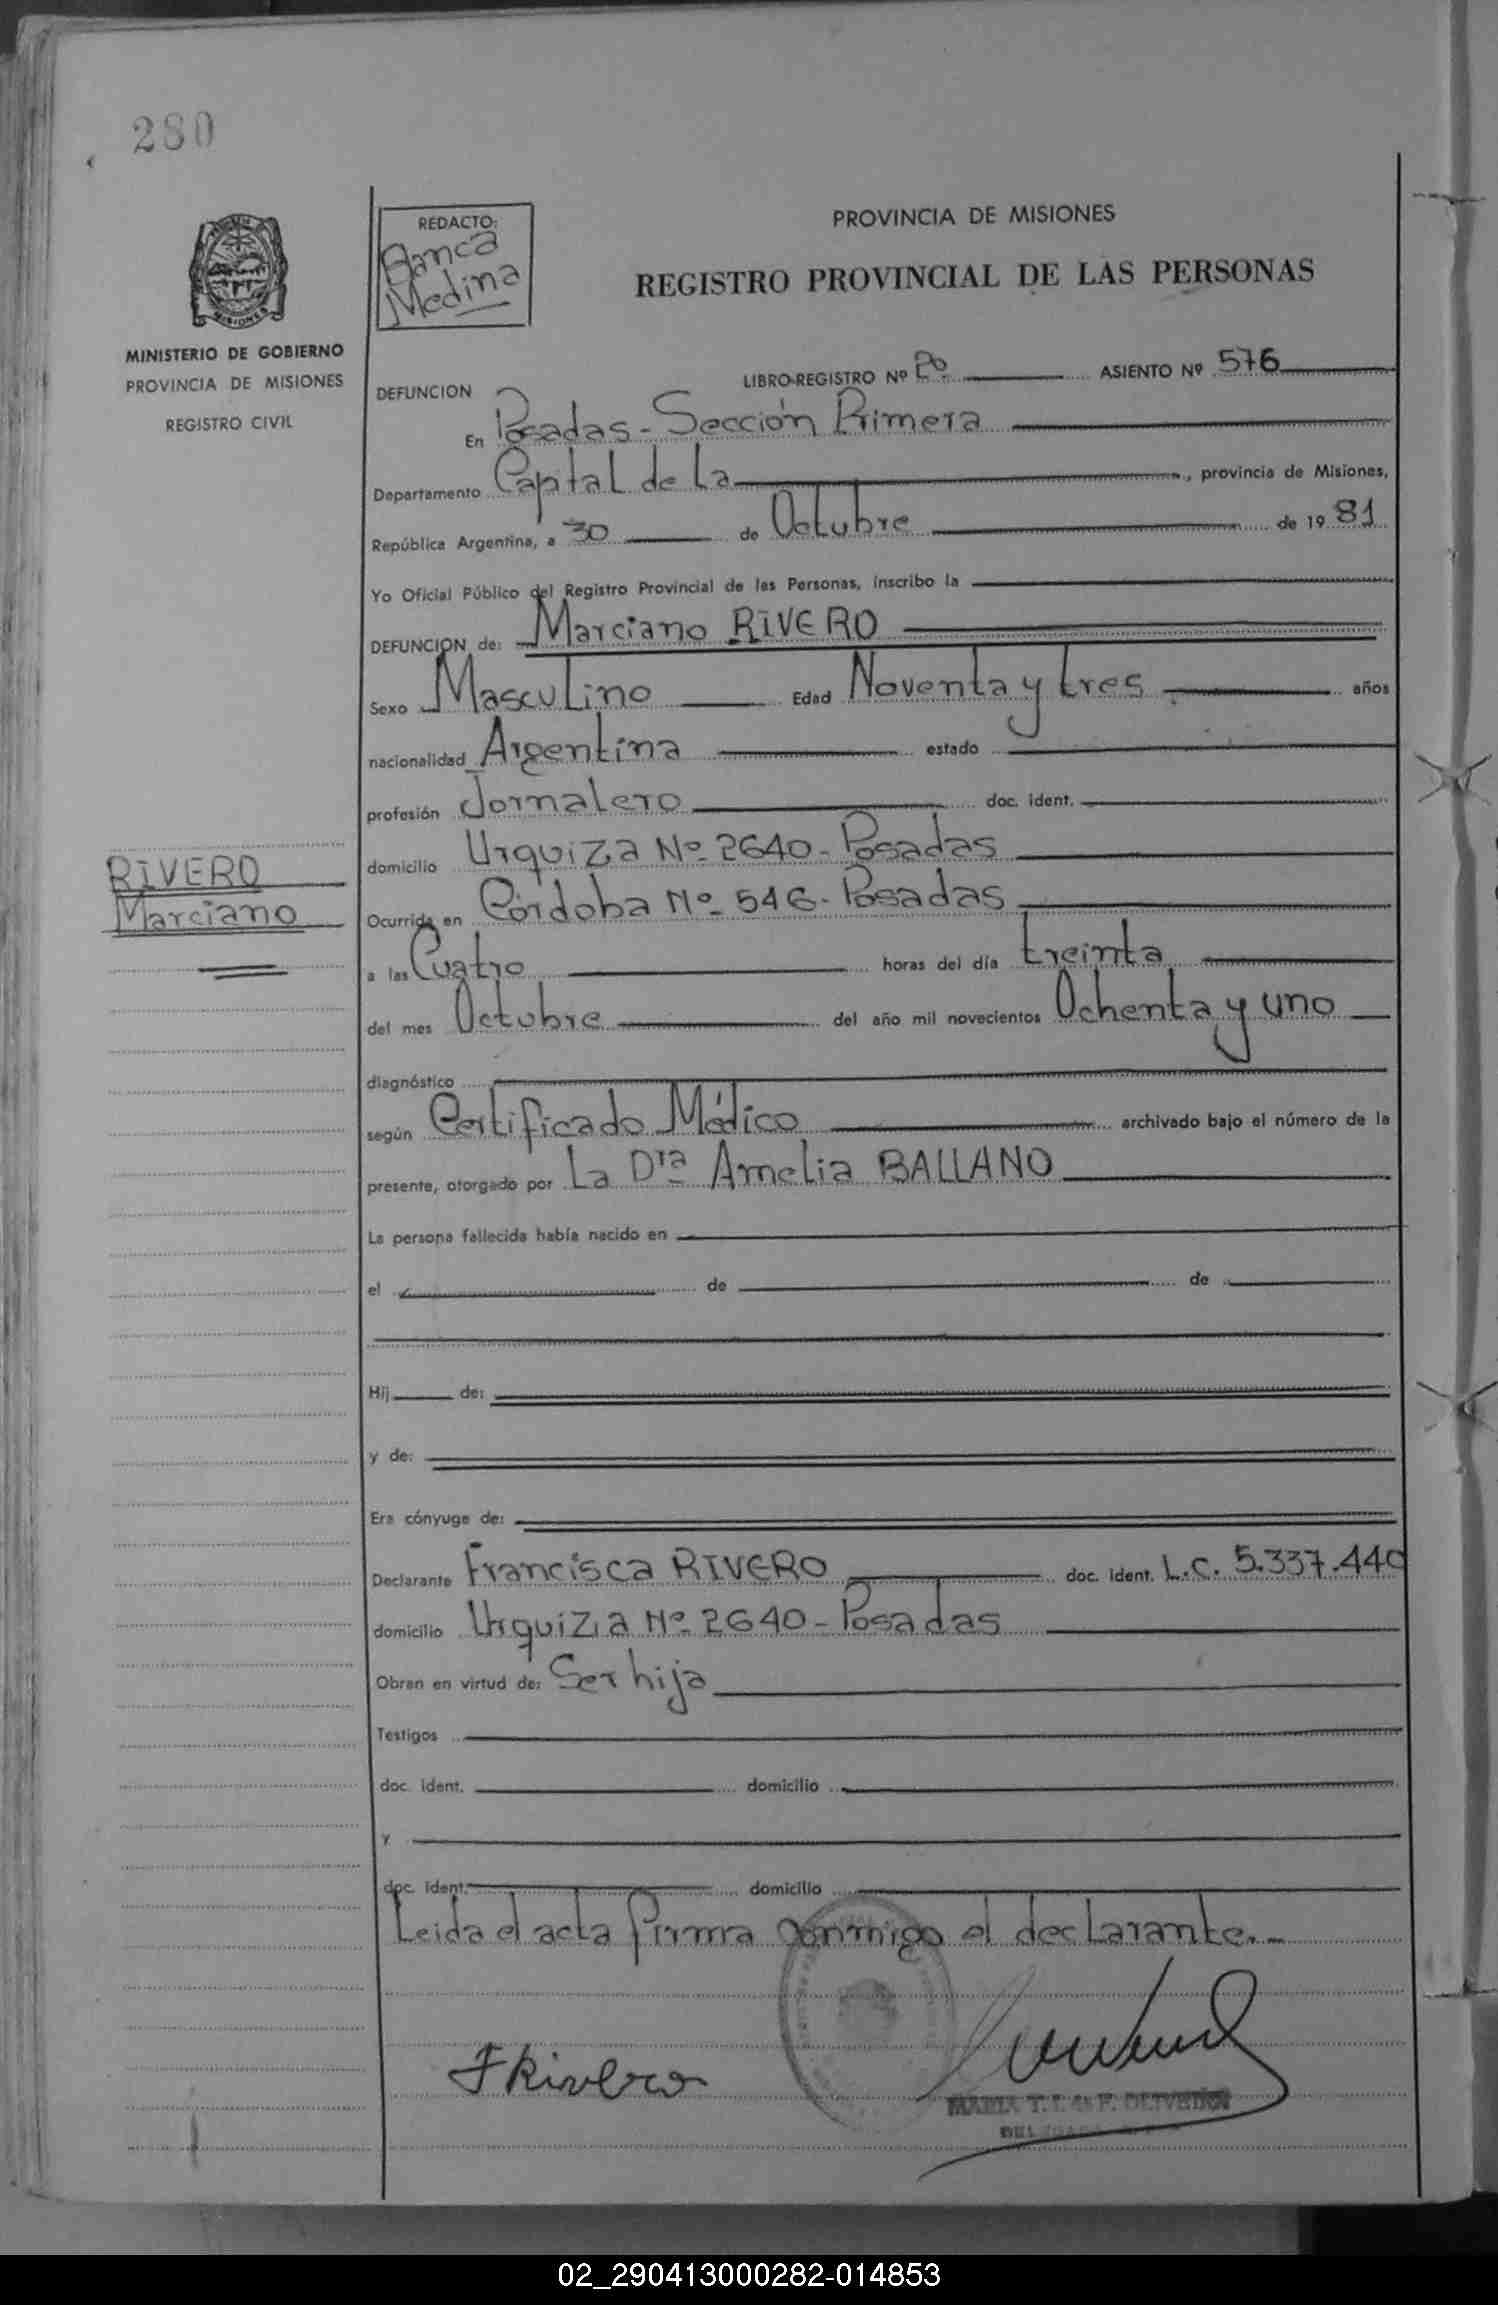 280
REDACTO:
Blanca
Medina
PROVINCIA DE MISIONES
REGISTRO PROVINCIAL DE LAS PERSONAS
MINISTERIO DE GOBIERNO
PROVINCIA DE MISIONES
REGISTRO CIVIL
DEFUNCION LIBRO-REGISTRO Nº ASIENTO Nº 576
En Posadas - Sección Primera
Departamento Capital de La, provincia de Misiones,
República Argentina, a 30 de Octubre de 1981
Yo Oficial Público del Registro Provincial de las Personas, inscribo la
DEFUNCION de: Marciano RIVERO
Sexo Masculino Edad Noventa y tres años
nacionalidad Argentina estado
profesión Jornalero doc. ident.
domicilio Urquiza Nº 2640 - Posadas
RIVERO
Marciano
Ocurrida en Córdoba Nº 546 - Posadas
a las Cuatro horas del día treinta
del mes Octubre del año mil novecientos Ochenta y uno
diagnóstico
según Certificado Médico archivado bajo el número de la
presente, otorgado por La Dra Amelia BALLANO
La persona fallecida había nacido en
el de de
Hij de:
y de:
Era cónyuge de:
Declarante Francisca RIVERO doc. ident. L.C. 5.337.440
domicilio Urquiza Nº 2640 - Posadas
Obran en virtud de: Ser hija
Testigos
doc. ident. domicilio
y
doc. ident. domicilio
Leida el acta firma conmigo el declarante.-
F Rivero
MARIA T. I. de F. OLIVEIRA
02_290413000282-014853